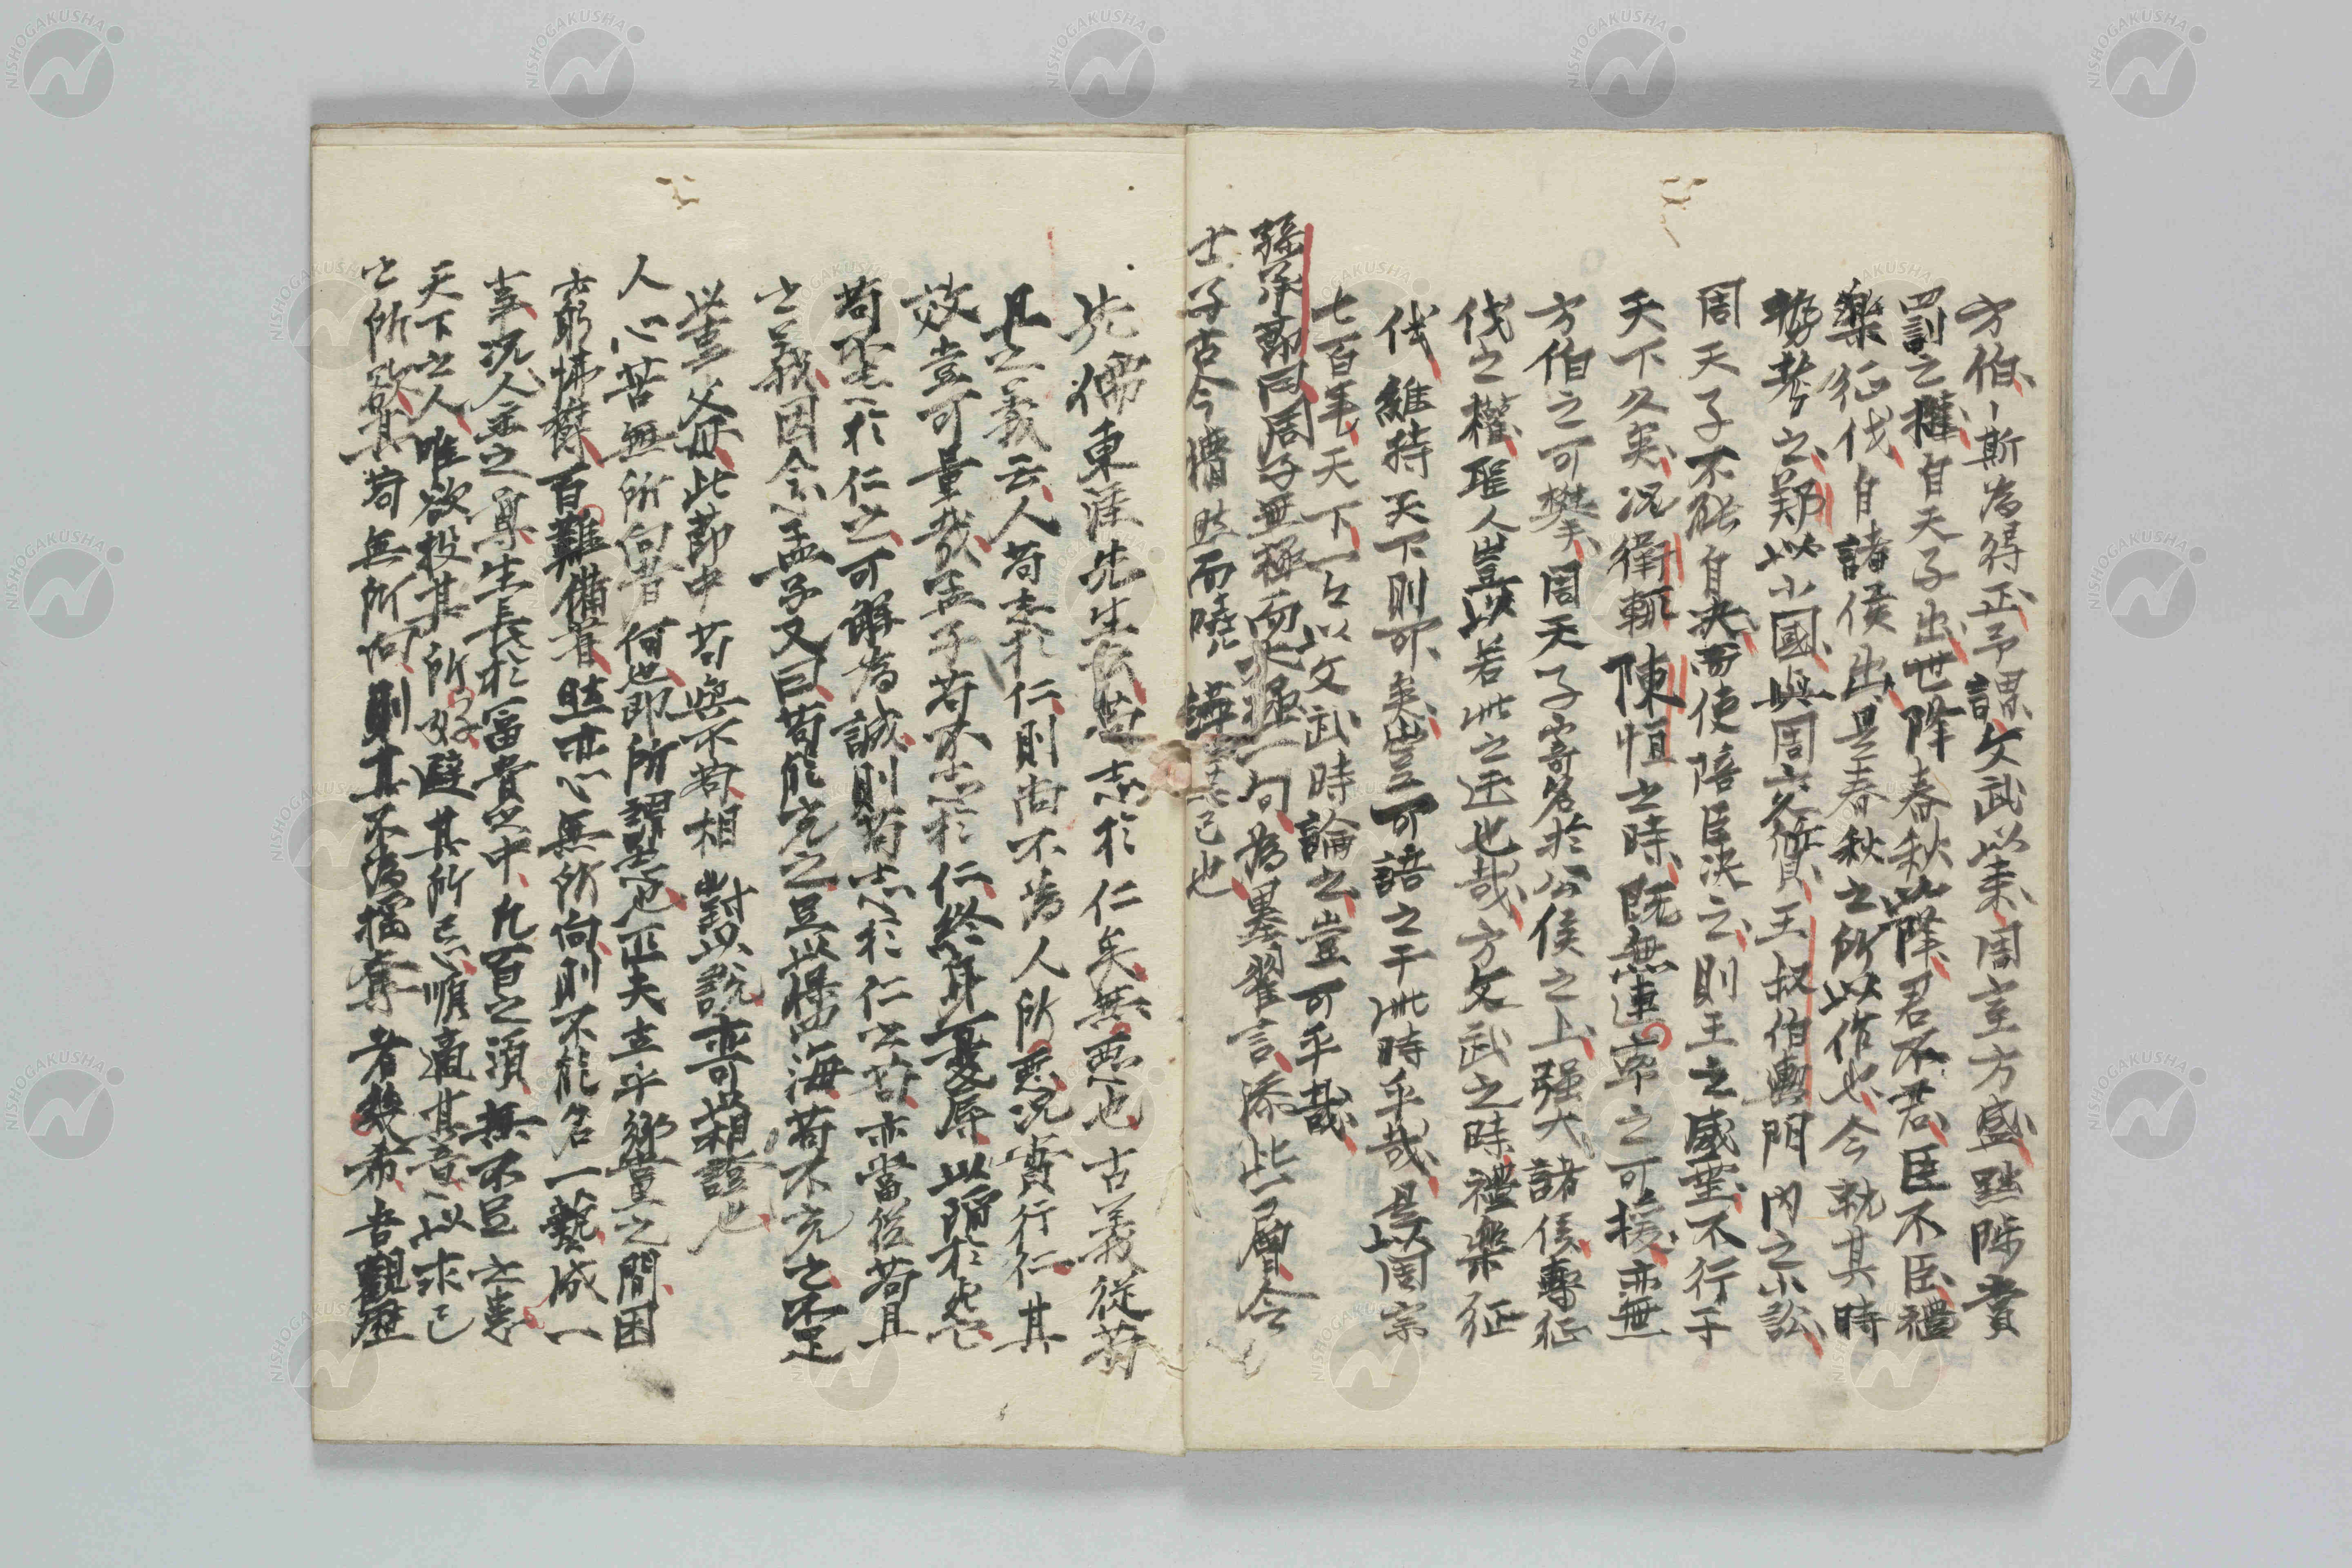 方伯、斯為得正、予謂文武以来、周室方盛、黜陟賞
罰之權、自天子出、世降春秋以降、君不君、臣不臣、禮
樂征伐、自諸侯出、是春秋之所以作也、今就其時
勢考之、鄭以小國與周交質、王叔伯輿門内之小訟、
周天子不能自決而使陪臣決之、則王之威璽不行于
天下久矣、況衛輒陳恒之時、既無連率之可援、亦無
方伯之可擧、周天子寄名於公侯之上、强大諸侯專征
伐之權、聖人豈以若此之迂也哉、方文武之時禮樂征
伐維持天下則可矣、豈可語之于此時乎哉、是以周宗
七百年天下一以文武時論之豈可乎哉
孫 周子無極而太極一句、為墨翟言、添此一層令
士子古今懵然而曉 已也
先儒東涯先生云苟志於仁矣無悪也古義從苟
且之義云、人苟志於仁則尚不為人所悪況實行仁、其
效豈可量哉、孟子苟不志於仁、終身憂辱、以陷於死亡
苟至於仁之可解為誠、則苟志於仁之苟、亦當從苟且
之義因令孟子又曰苟能充之足以保四海、苟不充之不足
以事父母、此節中苟與不苟相對以説、亦可類證也
人心苦無所向者何也即所謂是也匹夫立乎郷黨之間、困
窮怫鬱、百難備着、且亦心無所向、則不能名一藝成一
事、況人主之尊、生長於富貴之中、凡百之須無不足之患
天下之人、唯欲投其所好避其所忌順適其意、以求己
之所欲、其苟無所向、則其不為搖奪者幾希、吾觀歴